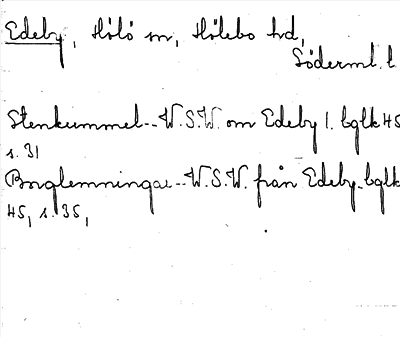 Edeby, Hölö sn, Hölebo hd,
Söderml. l.
Stenkummel--W.S.W. om Edeby l. bglk 45
s. 31
Borglemningar--W.S.W. från Edeby-bglk
45, s. 35,